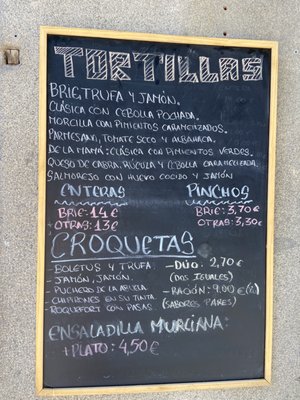 TORTILLAS
BRIE, TRUFA Y JAMÓN.
CLÁSICA CON CEBOLLA POCHADA.
MORCILLA CON PIMIENTOS CARAMELIZADOS.
PARMESANO, TOMATE SECO Y ALBAHACA.
DE LA MAMÁ: CLÁSICA CON PIMIENTOS VERDES.
QUESO DE CABRA, RÚCULA Y CEBOLLA CARAMELIZADA.
SALMOREJO CON HUEVO COCIDO Y JAMÓN
ENTERAS PINCHOS
BRIE: 14 € BRIE: 3,70 €
OTRAS: 13€ OTRAS: 3,30€
CROQUETAS
- BOLETUS Y TRUFA. - DÚO: 2,70 €
- JAMÓN, JAMÓN. (DOS IGUALES)
- PUCHERO DE LA ABUELA - RACIÓN: 9,00 €
- CHIPIRONES EN SU TINTA (SABORES PARES)
- ROQUEFORT CON PASAS
ENSALADILLA MURCIANA:
PLATO: 4,50€